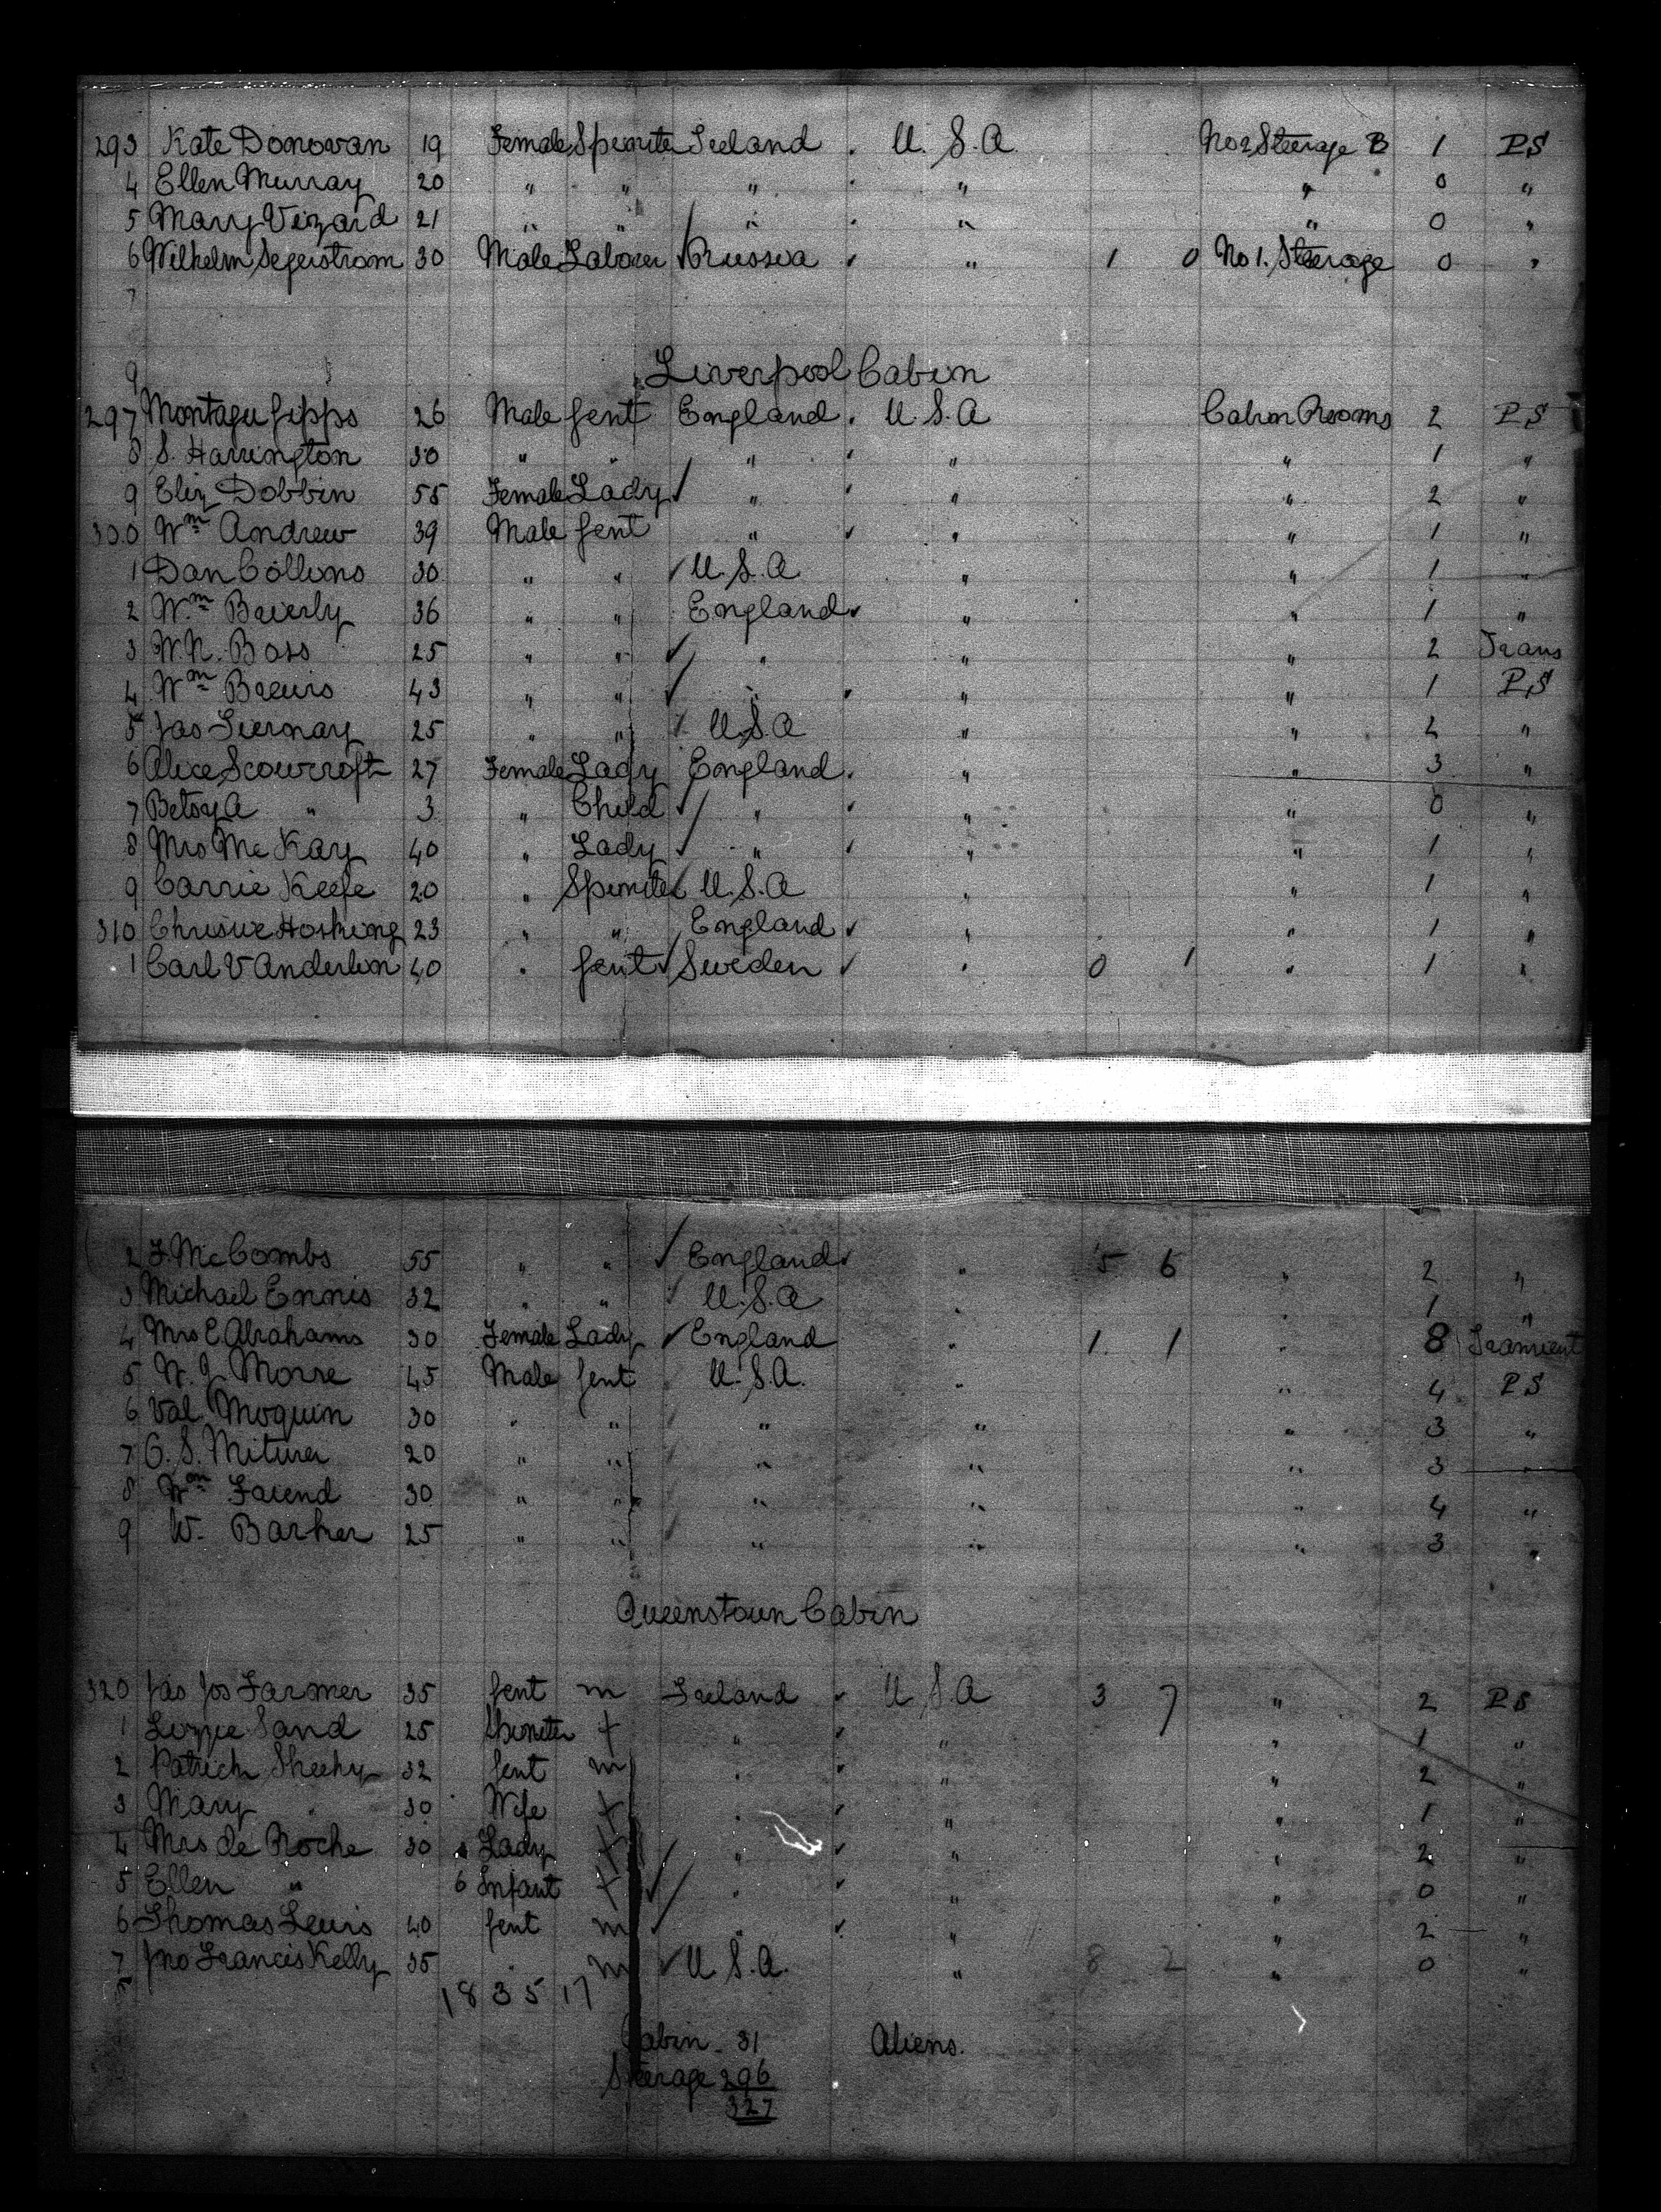 293 Kate Donovan 19 Female Spinster Ireland . U.S.A No 2 Steerage B 1 P.S
4 Ellen Murray 20 " " " . " " 0 "
5 Mary Vizard 21 " " " . " " 0 "
6 Wilhelm Segerstrom 30 Male Labourer Russia " 1 0 No 1. Steerage 0 "
7
9 Liverpool Cabin
297 Montagu Gipps 26 Male Gent England . U.S.A Cabin Rooms 2 P.S
8 S. Harrington 30 " " " " " 1 "
9 Eliz Dobbin 55 Female Lady " " " 2 "
300 Wm Andrew 39 Male Gent " " " 1 "
1 Dan Collins 30 " " U.S.A " " 1 "
2 Wm Beverly 36 " " England " " 1 "
3 W.N. Boss 25 " " " " " 2 Trans
4 Wm Brewis 43 " " " " " 1 P.S
5 Jas 25 " " U.S.A " " 2 "
6 Alice Scowcroft 27 Female Lady England . " " 3 "
7 Betsy A " 3 " Child " " " 0 "
8 Mrs Mc Kay 40 " Lady " " " 1 "
9 Carrie Keefe 20 " Spinster U.S.A " " 1 "
310 Chrissie Hosking 23 " " England " " 1 "
1 Carl V Anderlon 40 " Gent Sweden " 0 1 " 1 "
2 J. McCombs 55 " " England " 5 6 " 2 "
3 Michael Ennis 32 " " U.S.A " " 1 "
4 Mrs E Abrahams 30 Female Lady England " 1 1 " 8 Transient
5 W. J. Morse 45 Male Gent U.S.A. " " 4 P.S
6 Val Moquin 30 " " " " " 3 "
7 20 " " " " " 3 "
8 Wm 30 " " " " " 4 "
9 W. Barker 25 " " " " " 3 "
Queenstown Cabin
320 Jas Jos Farmer 35 Gent m Ireland U.S.A 3 7 " 2 P.S
1 Lizzie Sand 25 Spinster f " " " 1 "
2 Patrick Sheehy 32 Gent m " " " 2 "
3 Mary " 30 Wife f " " " 1 "
4 Mrs de Roche 30 Lady f " " " 2 "
5 Ellen " 6 Infant f " " " 0 "
6 Thomas Lewis 40 Gent m " " " 2 "
7 Jno Francis Kelly 35 " m U.S.A. " 8 2 " 0 "
18 35 17
Cabin - 31 Aliens.
Steerage 296
327